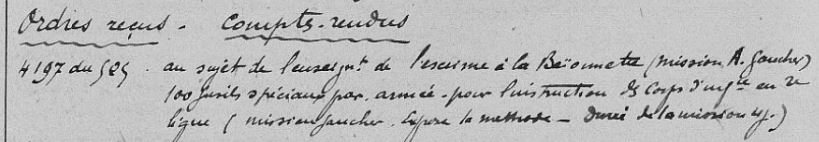 Ordres reçus - Compts-rendus
4197 du 5/25 - au sujet de l'enseignt de l'escrime à la Baïonnette (mission A. Gaucher)
100 fusils spéciaux par armée - pour l'instruction des Corps d'
ligne (mission Gaucher. Expose la méthode - Durée de la mission 4j.)